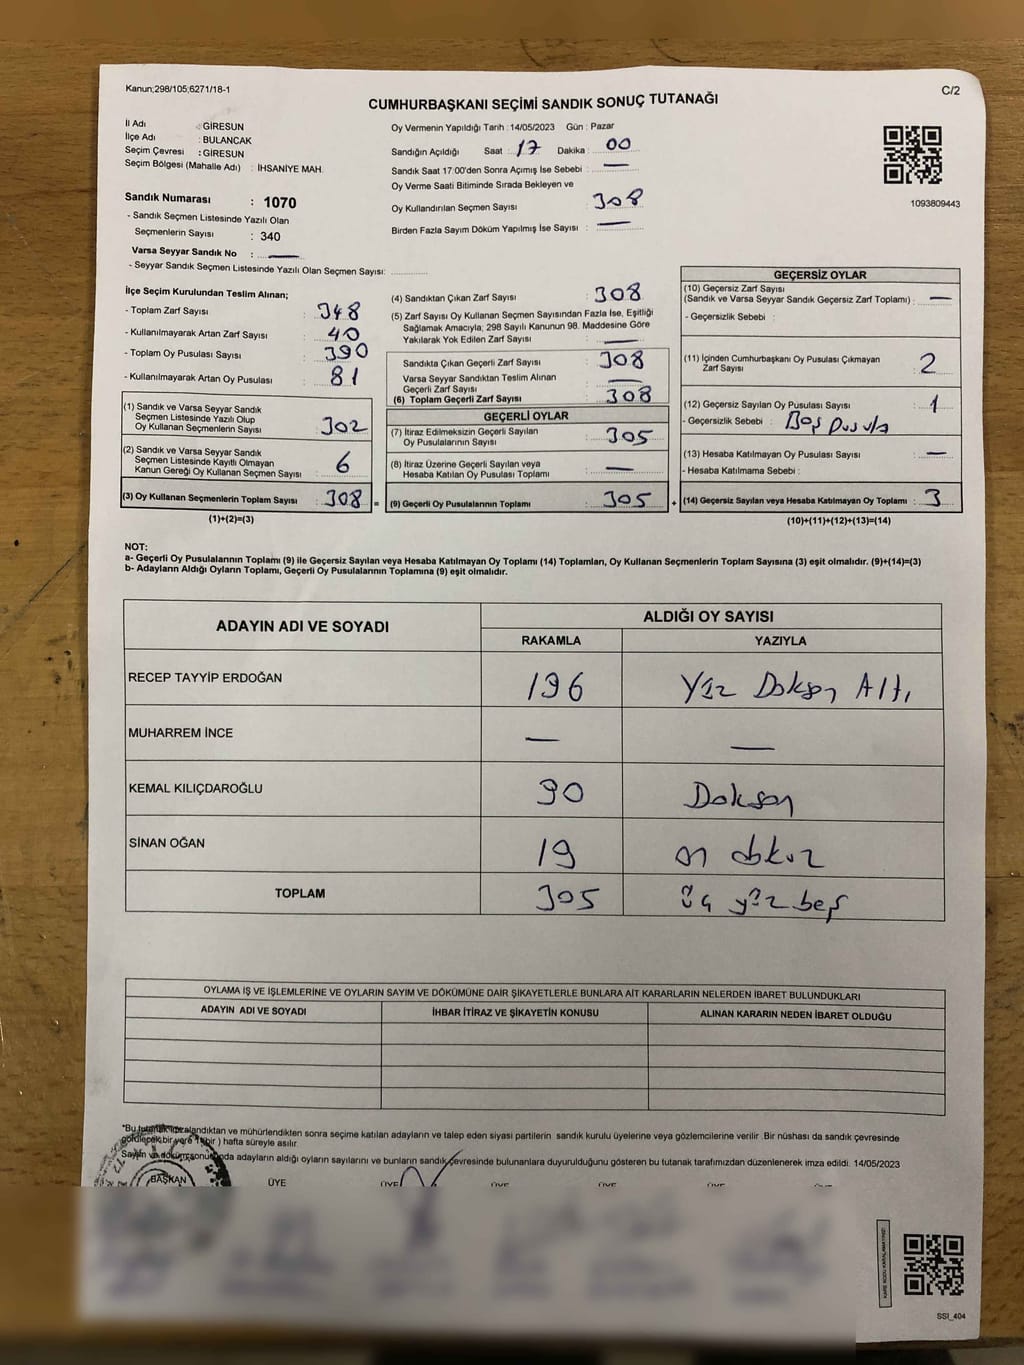 Kanun;298/105;6271/18-1
C/2
CUMHURBAŞKANI SEÇİMİ SANDIK SONUÇ TUTANAĞI
İl Adı : GİRESUN
İlçe Adı : BULANCAK
Seçim Çevresi : GİRESUN
Seçim Bölgesi (Mahalle Adı) : İHSANİYE MAH.
Sandık Numarası : 1070
- Sandık Seçmen Listesinde Yazılı Olan
Seçmenlerin Sayısı : 340
Varsa Seyyar Sandık No : —
- Seyyar Sandık Seçmen Listesinde Yazılı Olan Seçmen Sayısı:
Oy Vermenin Yapıldığı Tarih : 14/05/2023 Gün : Pazar
Sandığın Açıldığı Saat : 17 Dakika : 00
Sandık Saat 17:00'den Sonra Açımış İse Sebebi : —
Oy Verme Saati Bitiminde Sırada Bekleyen ve
Oy Kullandırılan Seçmen Sayısı : 308
Birden Fazla Sayım Döküm Yapılmış İse Sayısı : —
1093809443
İlçe Seçim Kurulundan Teslim Alınan;
- Toplam Zarf Sayısı : 348
- Kullanılmayarak Artan Zarf Sayısı : 40
- Toplam Oy Pusulası Sayısı : 390
- Kullanılmayarak Artan Oy Pusulası : 81
(1) Sandık ve Varsa Seyyar Sandık
Seçmen Listesinde Yazılı Olup
Oy Kullanan Seçmenlerin Sayısı : 302
(2) Sandık ve Varsa Seyyar Sandık
Seçmen Listesinde Kayıtlı Olmayan
Kanun Gereği Oy Kullanan Seçmen Sayısı : 6
(3) Oy Kullanan Seçmenlerin Toplam Sayısı : 308 =
(1)+(2)=(3)
(4) Sandıktan Çıkan Zarf Sayısı : 308
(5) Zarf Sayısı Oy Kullanan Seçmen Sayısından Fazla İse, Eşitliği
Sağlamak Amacıyla; 298 Sayılı Kanunun 98. Maddesine Göre
Yakılarak Yok Edilen Zarf Sayısı : —
Sandıkta Çıkan Geçerli Zarf Sayısı : 308
Varsa Seyyar Sandıktan Teslim Alınan
Geçerli Zarf Sayısı : —
(6) Toplam Geçerli Zarf Sayısı : 308
GEÇERLİ OYLAR
(7) İtiraz Edilmeksizin Geçerli Sayılan
Oy Pusulalarının Sayısı : 305
(8) İtiraz Üzerine Geçerli Sayılan veya
Hesaba Katılan Oy Pusulası Toplamı : —
(9) Geçerli Oy Pusulalarının Toplamı : 305 +
GEÇERSİZ OYLAR
(10) Geçersiz Zarf Sayısı
(Sandık ve Varsa Seyyar Sandık Geçersiz Zarf Toplamı) : —
- Geçersizlik Sebebi :
(11) İçinden Cumhurbaşkanı Oy Pusulası Çıkmayan
Zarf Sayısı : 2
(12) Geçersiz Sayılan Oy Pusulası Sayısı : 1
- Geçersizlik Sebebi : Boş Pusula
(13) Hesaba Katılmayan Oy Pusulası Sayısı : —
- Hesaba Katılmama Sebebi :
(14) Geçersiz Sayılan veya Hesaba Katılmayan Oy Toplamı : 3
(10)+(11)+(12)+(13)=(14)
NOT:
a- Geçerli Oy Pusulalarının Toplamı (9) ile Geçersiz Sayılan veya Hesaba Katılmayan Oy Toplamı (14) Toplamları, Oy Kullanan Seçmenlerin Toplam Sayısına (3) eşit olmalıdır. (9)+(14)=(3)
b- Adayların Aldığı Oyların Toplamı, Geçerli Oy Pusulalarının Toplamına (9) eşit olmalıdır.
ADAYIN ADI VE SOYADI
ALDIĞI OY SAYISI
RAKAMLA YAZIYLA
RECEP TAYYİP ERDOĞAN 196 Yüz Doksan Altı
MUHARREM İNCE — —
KEMAL KILIÇDAROĞLU 90 Doksan
SİNAN OĞAN 19 on dokuz
TOPLAM 305 üç yüz beş
OYLAMA İŞ VE İŞLEMLERİNE VE OYLARIN SAYIM VE DÖKÜMÜNE DAİR ŞİKAYETLERLE BUNLARA AİT KARARLARIN NELERDEN İBARET BULUNDUKLARI
ADAYIN ADI VE SOYADI İHBAR İTİRAZ VE ŞİKAYETİN KONUSU ALINAN KARARIN NEDEN İBARET OLDUĞU
*Bu tutanak imzalandıktan ve mühürlendikten sonra seçime katılan adayların ve talep eden siyasi partilerin sandık kurulu üyelerine veya gözlemcilerine verilir .Bir nüshası da sandık çevresinde
görülecek bir yere 1 ( bir ) hafta süreyle asılır.
Sayım ve döküm sonucunda adayların aldığı oyların sayılarını ve bunların sandık çevresinde bulunanlara duyurulduğunu gösteren bu tutanak tarafımızdan düzenlenerek imza edildi. 14/05/2023
BAŞKAN ÜYE ÜYE ÜYE ÜYE ÜYE
SSI_404